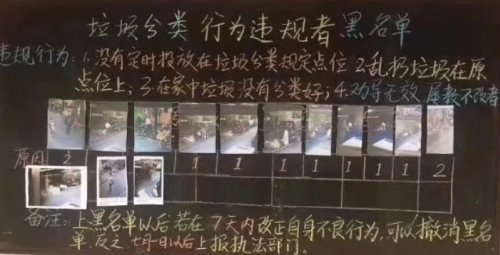 垃圾分类 行为违规者 黑名单
违规行为：1.没有定时投放在垃圾分类规定点位 2.乱扔垃圾在原
点位上；3.在家中垃圾没有分类好；4.劝导无效 屡教不改者
原因 2 1 1 1 1 1 1 1 1 2
备注：上黑名单以后若在7天内改正自身不良行为，可以撤消黑名
单，反之 日以后上报执法部门。